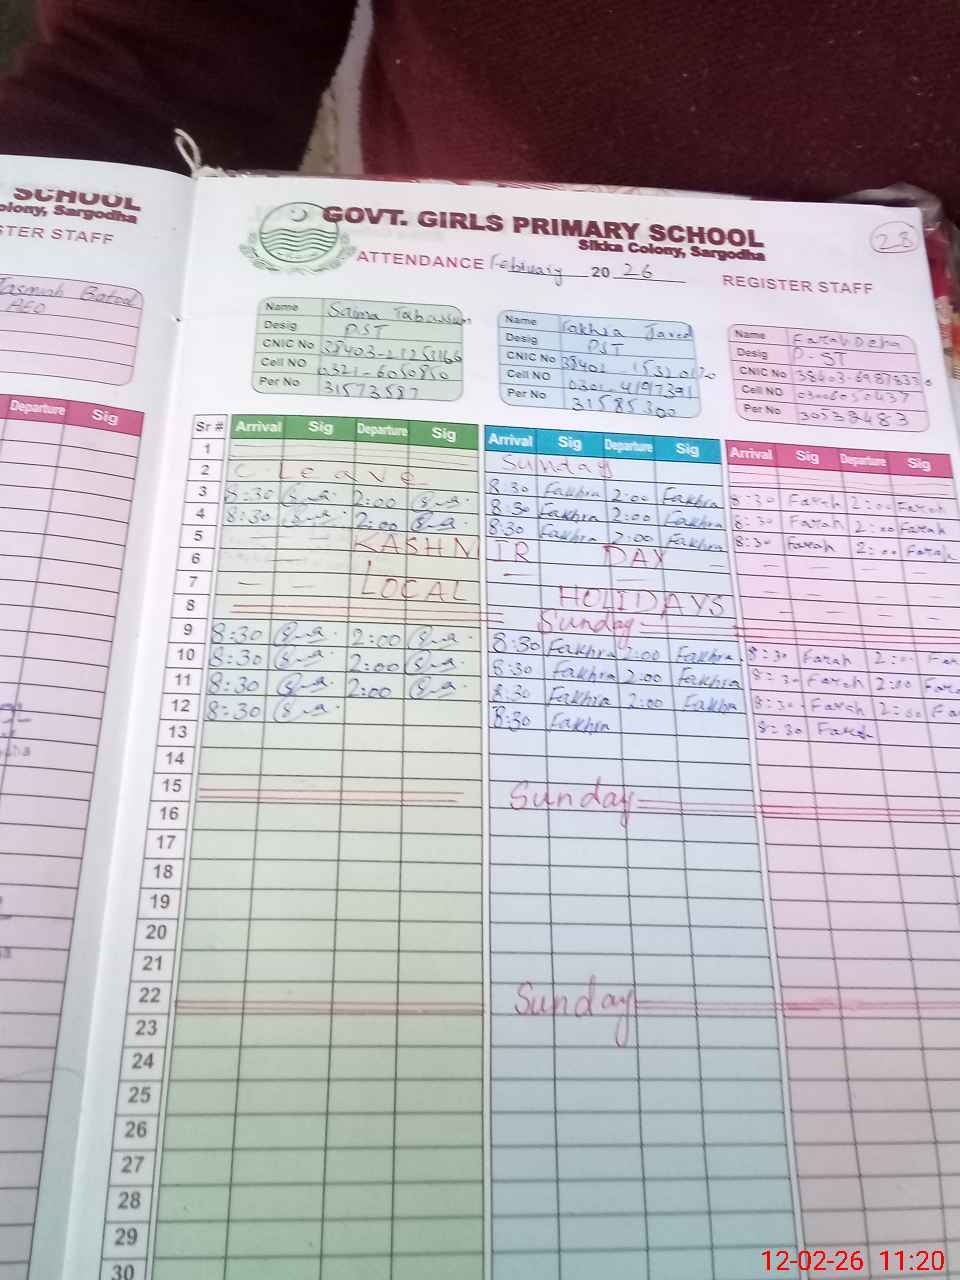 SCHOOL
olony, Sargodha
STER STAFF
AEO
Departure Sig
GOVT. GIRLS PRIMARY SCHOOL
Sikka Colony, Sargodha
28
ATTENDANCE February 20 26 REGISTER STAFF
Name Saima Tabassum
Desig PST
CNIC No
Cell NO 0321-6050850
Per No 31573587
Name Fakhra Javed
Desig PST
CNIC No
Cell NO 0301-4197391
Per No 31585300
Name Farah Deba
Desig P-ST
CNIC No
Cell NO 03006050437
Per No
Sr # Arrival Sig Departure Sig Arrival Sig Departure Sig Arrival Sig Departure Sig
1 Sunday
2 C. Leave 8:30 Fakhra 2:00 Fakhra 8:30 Farah 2:00 Farah
3 8:30 2:00 8:30 Fakhra 2:00 Fakhra 8:30 Farah 2:00 Farah
4 8:30 2:00 8:30 Fakhra 2:00 Fakhra 8:30 Farah 2:00 Farah
5 KASHMIR DAY
6
7 LOCAL HOLIDAYS
8 Sunday
9 8:30 2:00 8:30 Fakhra 2:00 Fakhra 8:30 Farah 2:00 Far
10 8:30 2:00 8:30 Fakhra 2:00 Fakhra 8:30 Farah 2:00 Fara
11 8:30 2:00 8:30 Fakhra 2:00 Fakhra 8:30 Farah 2:00 Fa
12 8:30 8:30 Fakhra 8:30 Farah
13
14
15 Sunday
16
17
18
19
20
21
22 Sunday
23
24
25
26
27
28
29
30
12-02-26 11:20